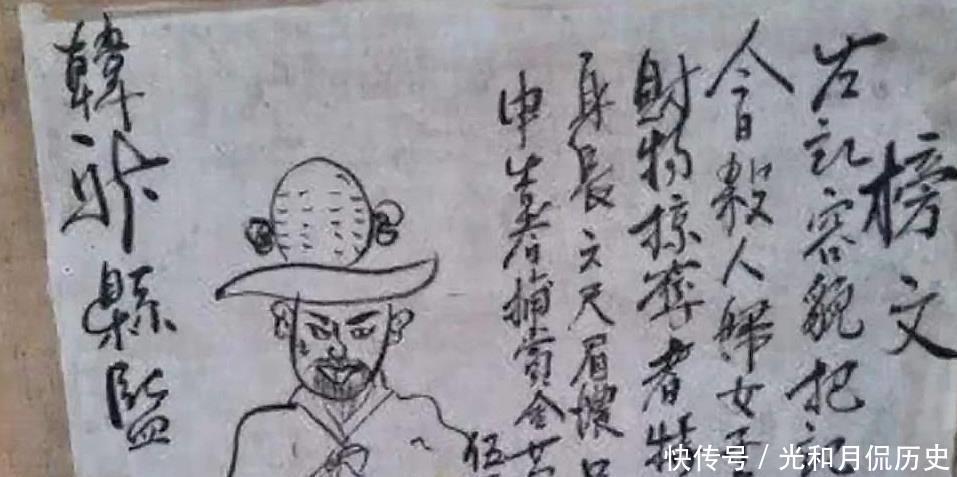 榜文
右記容貌把記
今日殺人婦女子
財物掠奪者
身長六尺眉濃口
申告者捕賞金
伍
韓 縣監
快传号 / 光和月侃历史